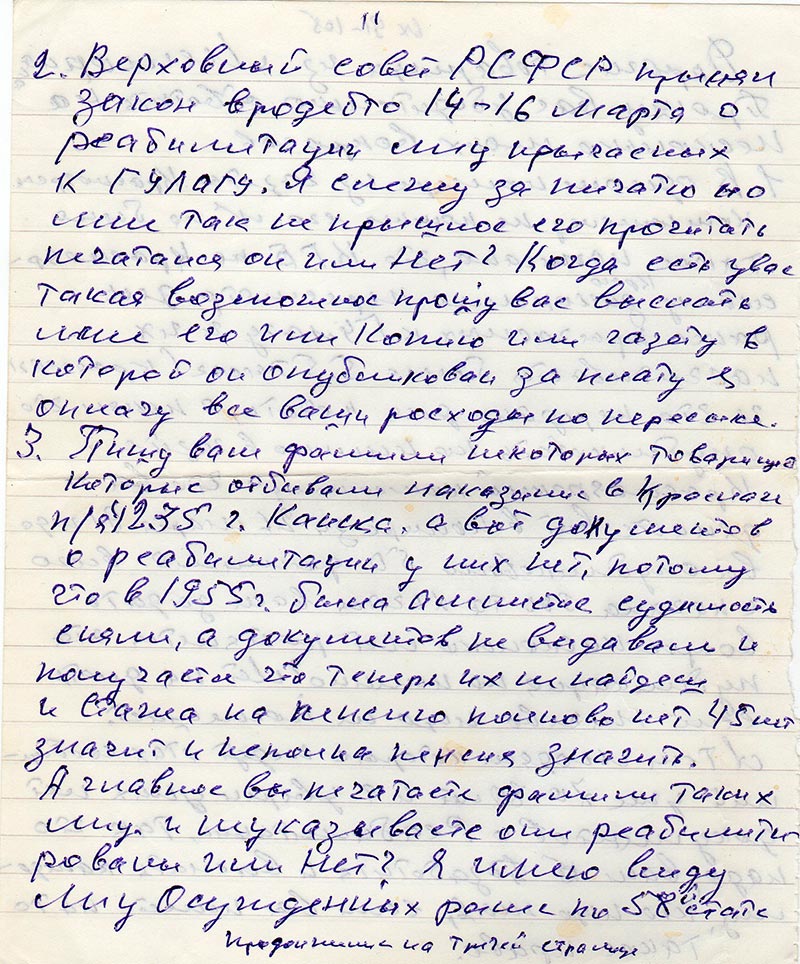 11
2. Верховный совет РСФСР принял
закон вродебто 14-16 марта о
реабилитации лиц причасных
к ГУЛАГУ. Я слежу за пичатю но
мне так не пришлос его прочитать
печатался он или Нет? Когда есть увас
такая возможнос прошу вас выслать
мне его или Копию или газету в
которой он опубликован за плату я
оплачу все ваши росходы по пересылке.
3. Пишу вам фамилии некоторых товарища
которые отбивали наказание в Краслаге
п/я 235 г. Канска, а вот документов
о реабилитации у них нет, потому
что в 1955 г. была амнистие судимость
сняли, а документов не видавали и
получается что теперь их ни найдеш
и Стажа на пенсию полново нет 45 лет
значит и неполна пенсия значить.
А главное вы печатаете фамилии таких
лиц. и неуказываете они реабилити
рованы или Нет? Я имею виду
лиц Осужденных ранше по 58й стате
продолжение на тричей странице